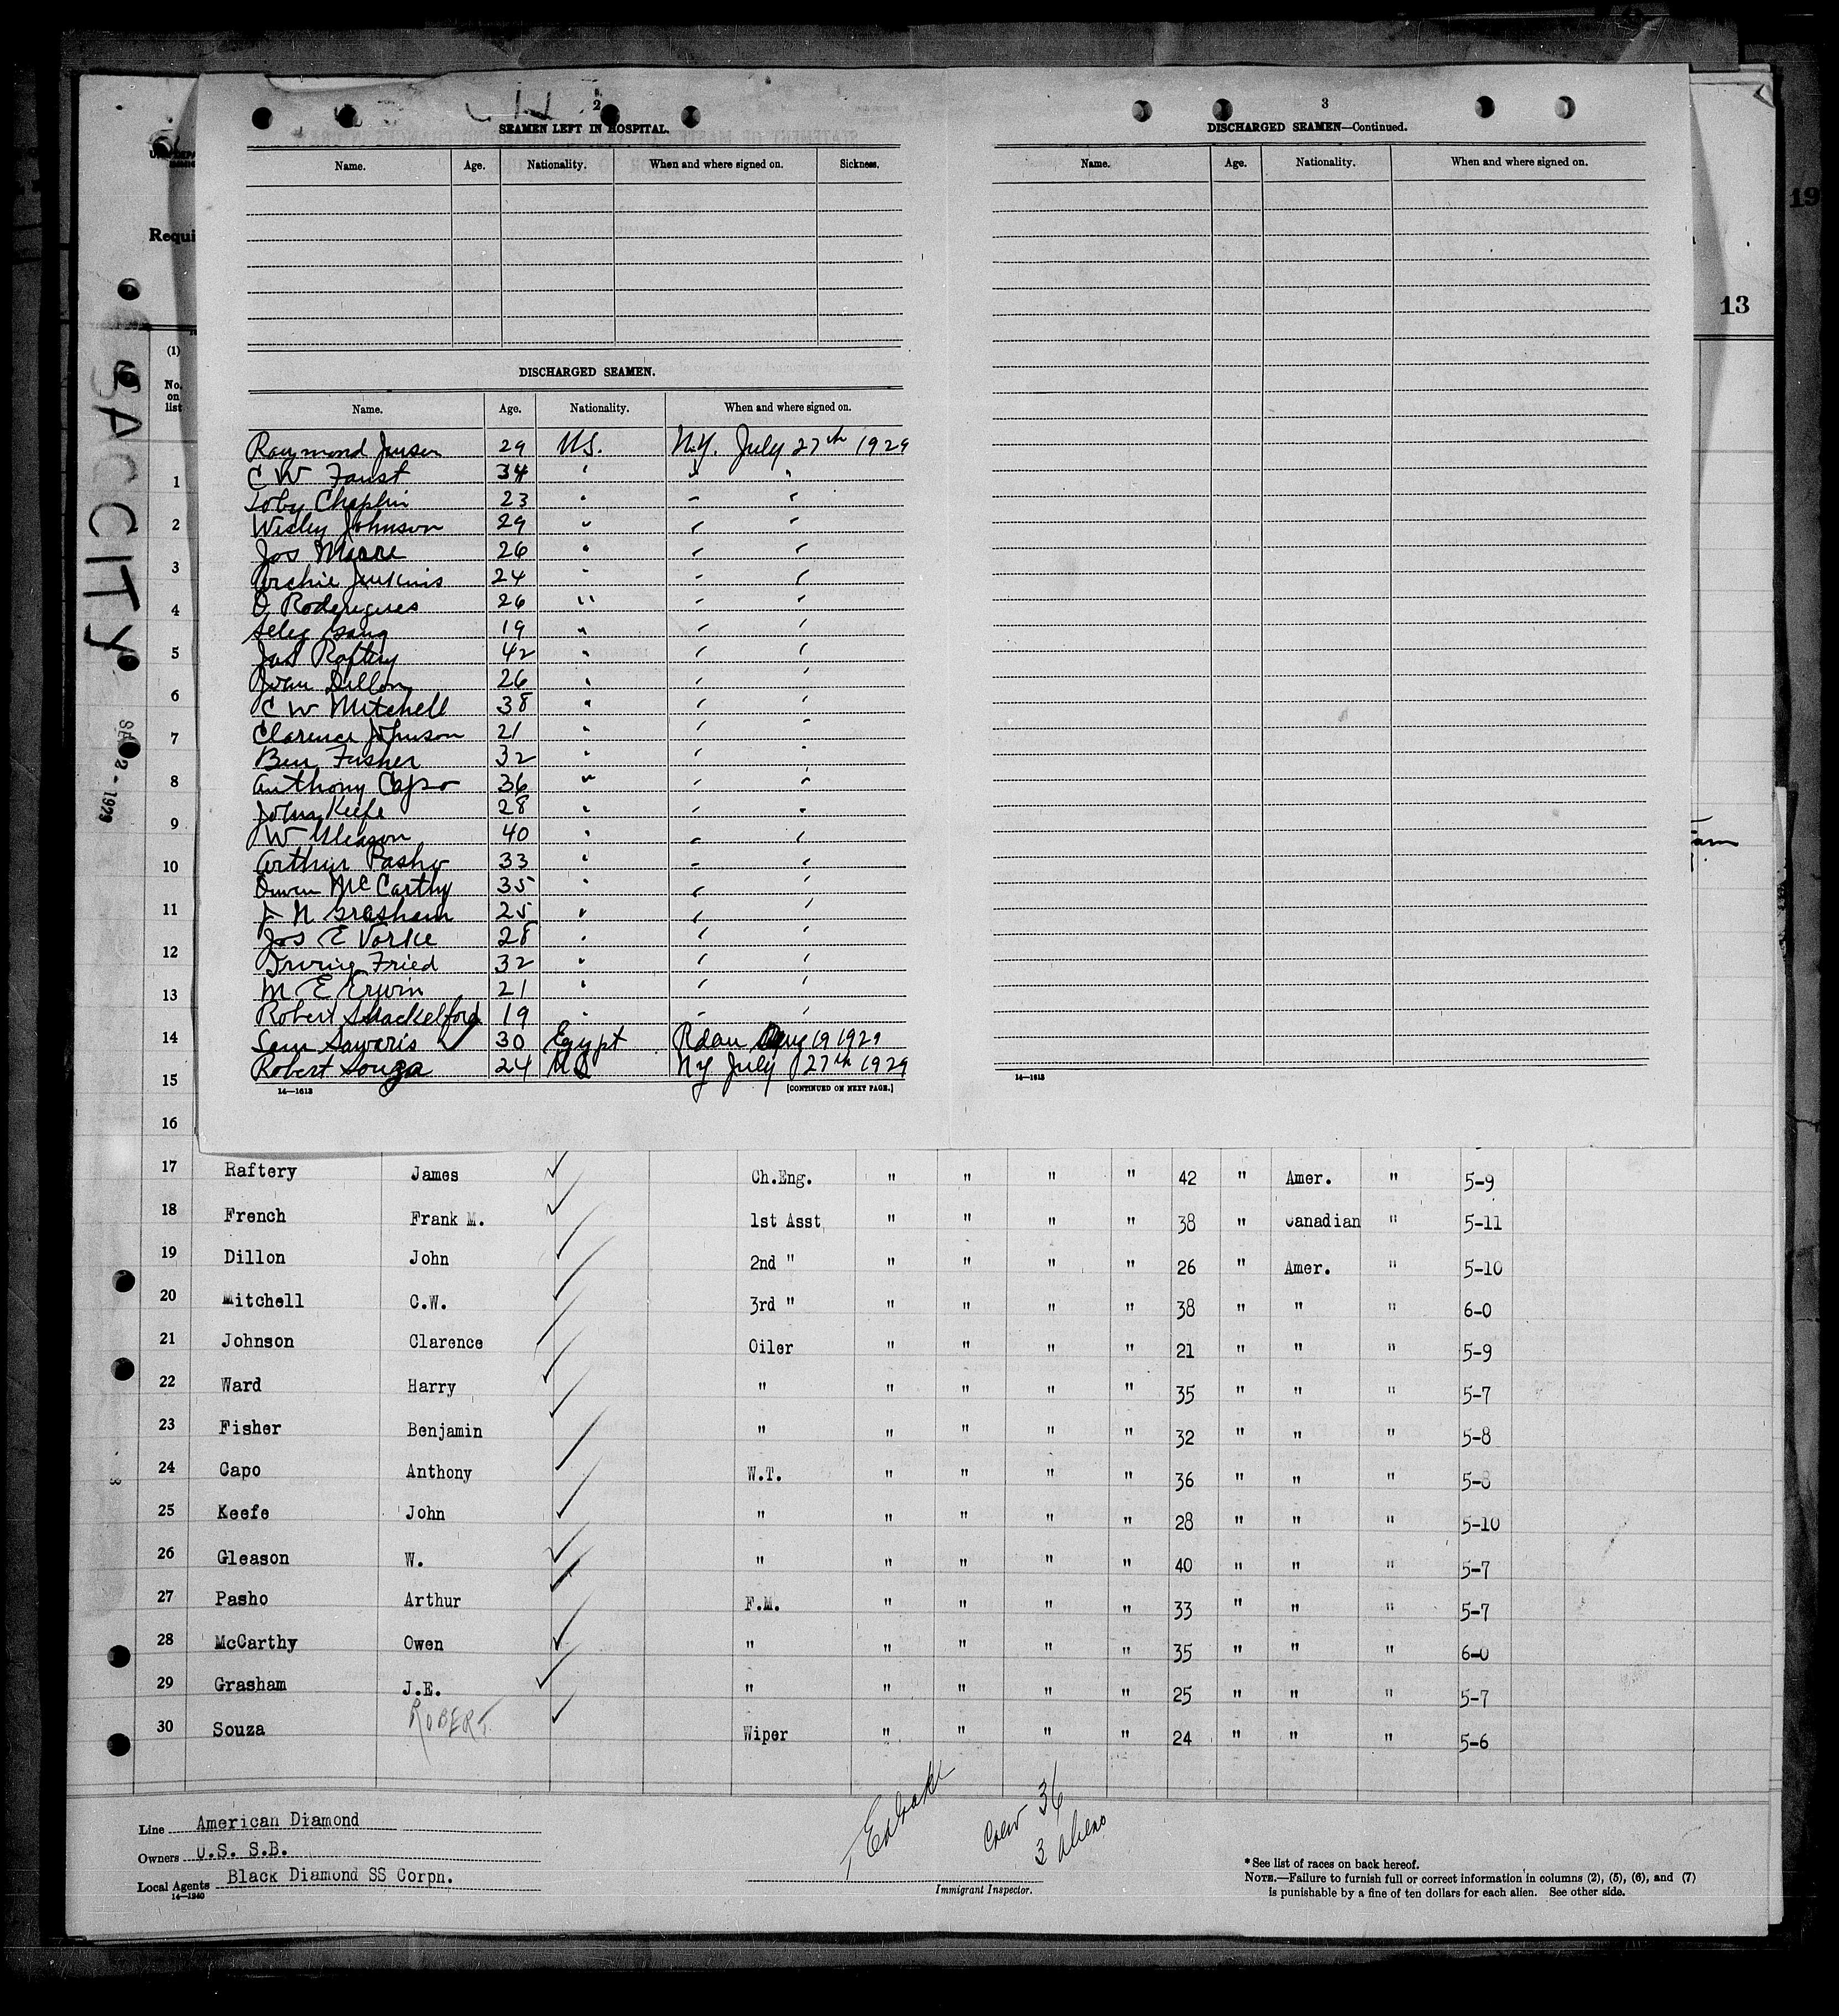 2
SEAMEN LEFT IN HOSPITAL.
Name. Age. Nationality. When and where signed on. Sickness.
DISCHARGED SEAMEN.
Name. Age. Nationality. When and where signed on.
Raymond Jensen 29 U.S. N.Y. July 27th 1929
C W Faust 34 " " "
Toby Chaplin 23 " " "
Wesley Johnson 29 " " "
Jos 26 " " "
Archie Jenkins 24 " " "
O Roderigues 26 " " "
19 " " "
Jas Raftery 42 " " "
Dillon 26 " " "
C W Mitchell 38 " " "
Clarence Johnson 21 " " "
Ben Fisher 32 " " "
Anthony Capo 36 " " "
John Keefe 28 " " "
W Gleason 40 " " "
Arthur Pasho 33 " " "
Owen McCarthy 35 " " "
Grasham 25 " " "
Jos E Vorke 28 " " "
Irving Fried 32 " " "
M E Erwin 21 " " "
Robert Shackelford 19 " " "
Sam Saweris 30 Egypt Rdam Aug 19 1929
Robert Souza 24 US NY July 27th 1929
14—1613
[CONTINUED ON NEXT PAGE.]
3
DISCHARGED SEAMEN—Continued.
Name. Age. Nationality. When and where signed on.
14—1613
Requi
19
13
SACCITY
SEP 2 - 1929
(1)
No.
on
list
1
2
3
4
5
6
7
8
9
10
11
12
13
14
15
16
17 Raftery James Ch.Eng. " " " " 42 " Amer. " 5-9
18 French Frank M. 1st Asst " " " " 38 " Canadian " 5-11
19 Dillon John 2nd " " " " " 26 " Amer. " 5-10
20 Mitchell C.W. 3rd " " " " " 38 " " " 6-0
21 Johnson Clarence Oiler " " " " 21 " " " 5-9
22 Ward Harry " " " " " 35 " " " 5-7
23 Fisher Benjamin " " " " " 32 " " " 5-8
24 Capo Anthony W.T. " " " " 36 " " " 5-8
25 Keefe John " " " " " 28 " " " 5-10
26 Gleason W. " " " " " 40 " " " 5-7
27 Pasho Arthur F.M. " " " " 33 " " " 5-7
28 McCarthy Owen " " " " " 35 " " " 6-0
29 Grasham J.E. " " " " " 25 " " " 5-7
30 Souza ROBERT. Wiper " " " " 24 " " " 5-6
Line American Diamond
Owners U.S. S.B.
Local Agents Black Diamond SS Corpn.
14—1240
Crew 36
3 aliens
Immigrant Inspector.
* See list of races on back hereof.
NOTE.—Failure to furnish full or correct information in columns (2), (5), (6), and (7)
is punishable by a fine of ten dollars for each alien. See other side.